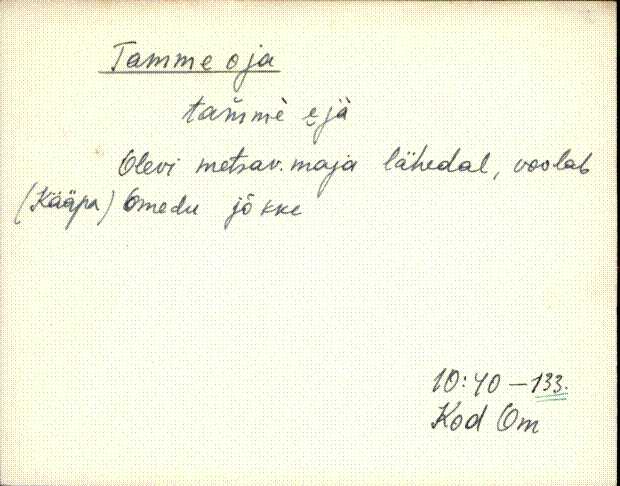 Tamme oja
tam̆mè e̮jä
Olevi metsav. maja lähedal, voolab
(Kääpa) Omedu jõkke
10:40 – 133.
Kod Om